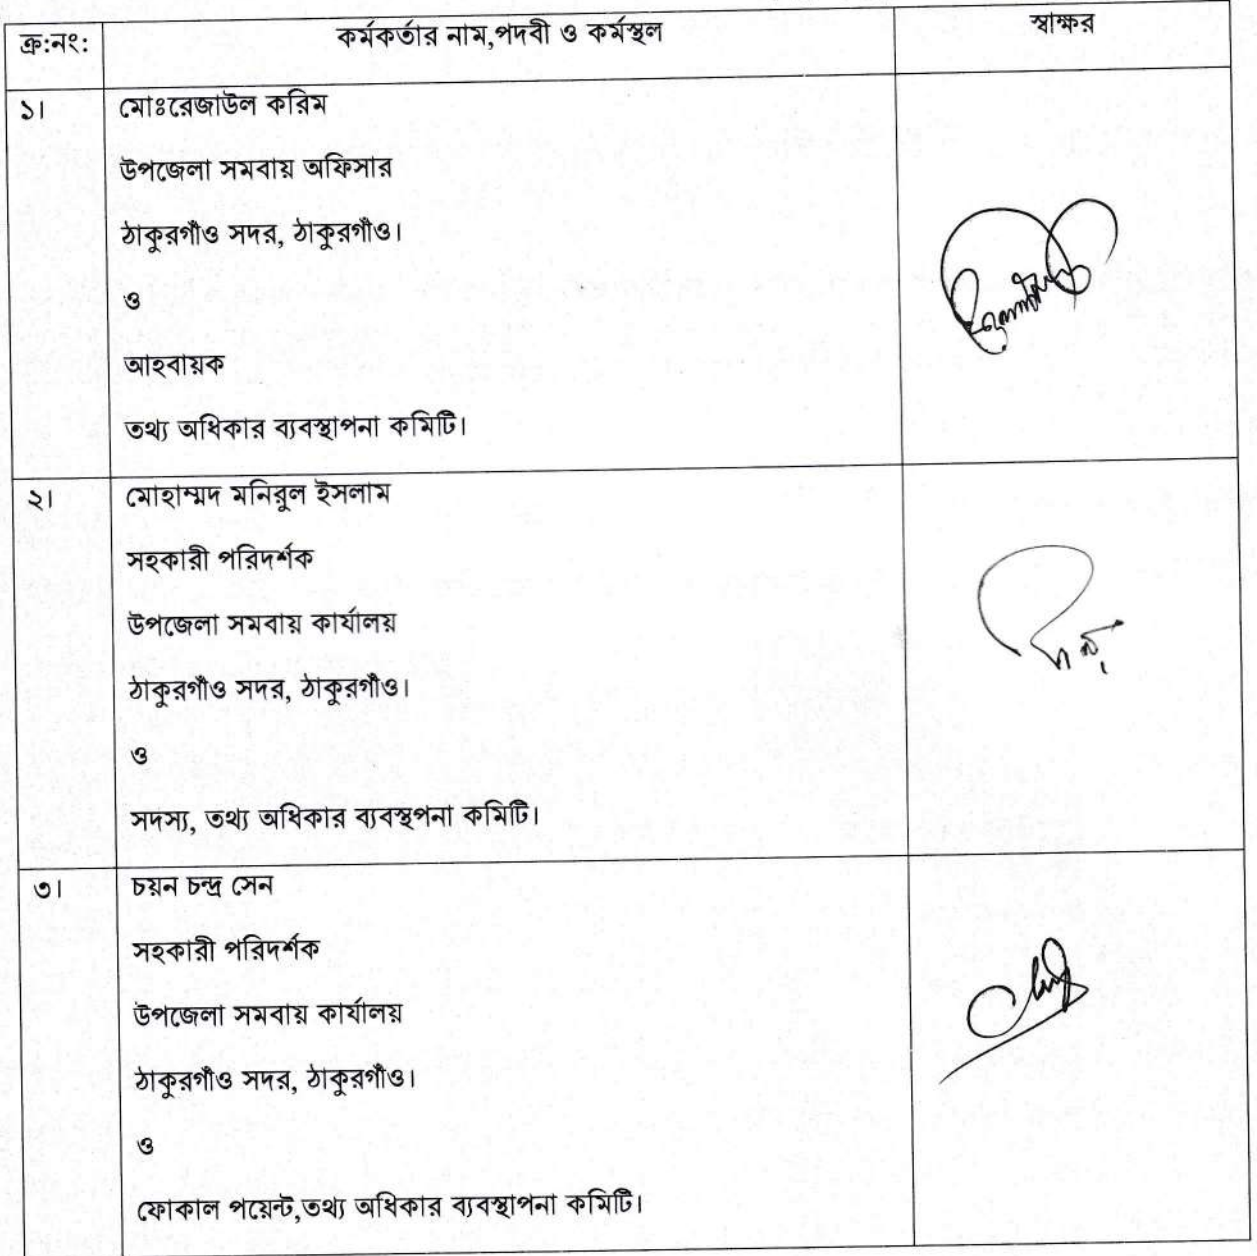 ক্র:নং: কর্মকর্তার নাম,পদবী ও কর্মস্থল স্বাক্ষর
১। মোঃরেজাউল করিম
উপজেলা সমবায় অফিসার
ঠাকুরগাঁও সদর, ঠাকুরগাঁও।
ও
আহবায়ক
তথ্য অধিকার ব্যবস্থাপনা কমিটি।
২। মোহাম্মদ মনিরুল ইসলাম
সহকারী পরিদর্শক
উপজেলা সমবায় কার্যালয়
ঠাকুরগাঁও সদর, ঠাকুরগাঁও।
ও
সদস্য, তথ্য অধিকার ব্যবস্থপনা কমিটি।
৩। চয়ন চন্দ্র সেন
সহকারী পরিদর্শক
উপজেলা সমবায় কার্যালয়
ঠাকুরগাঁও সদর, ঠাকুরগাঁও।
ও
ফোকাল পয়েন্ট,তথ্য অধিকার ব্যবস্থাপনা কমিটি।